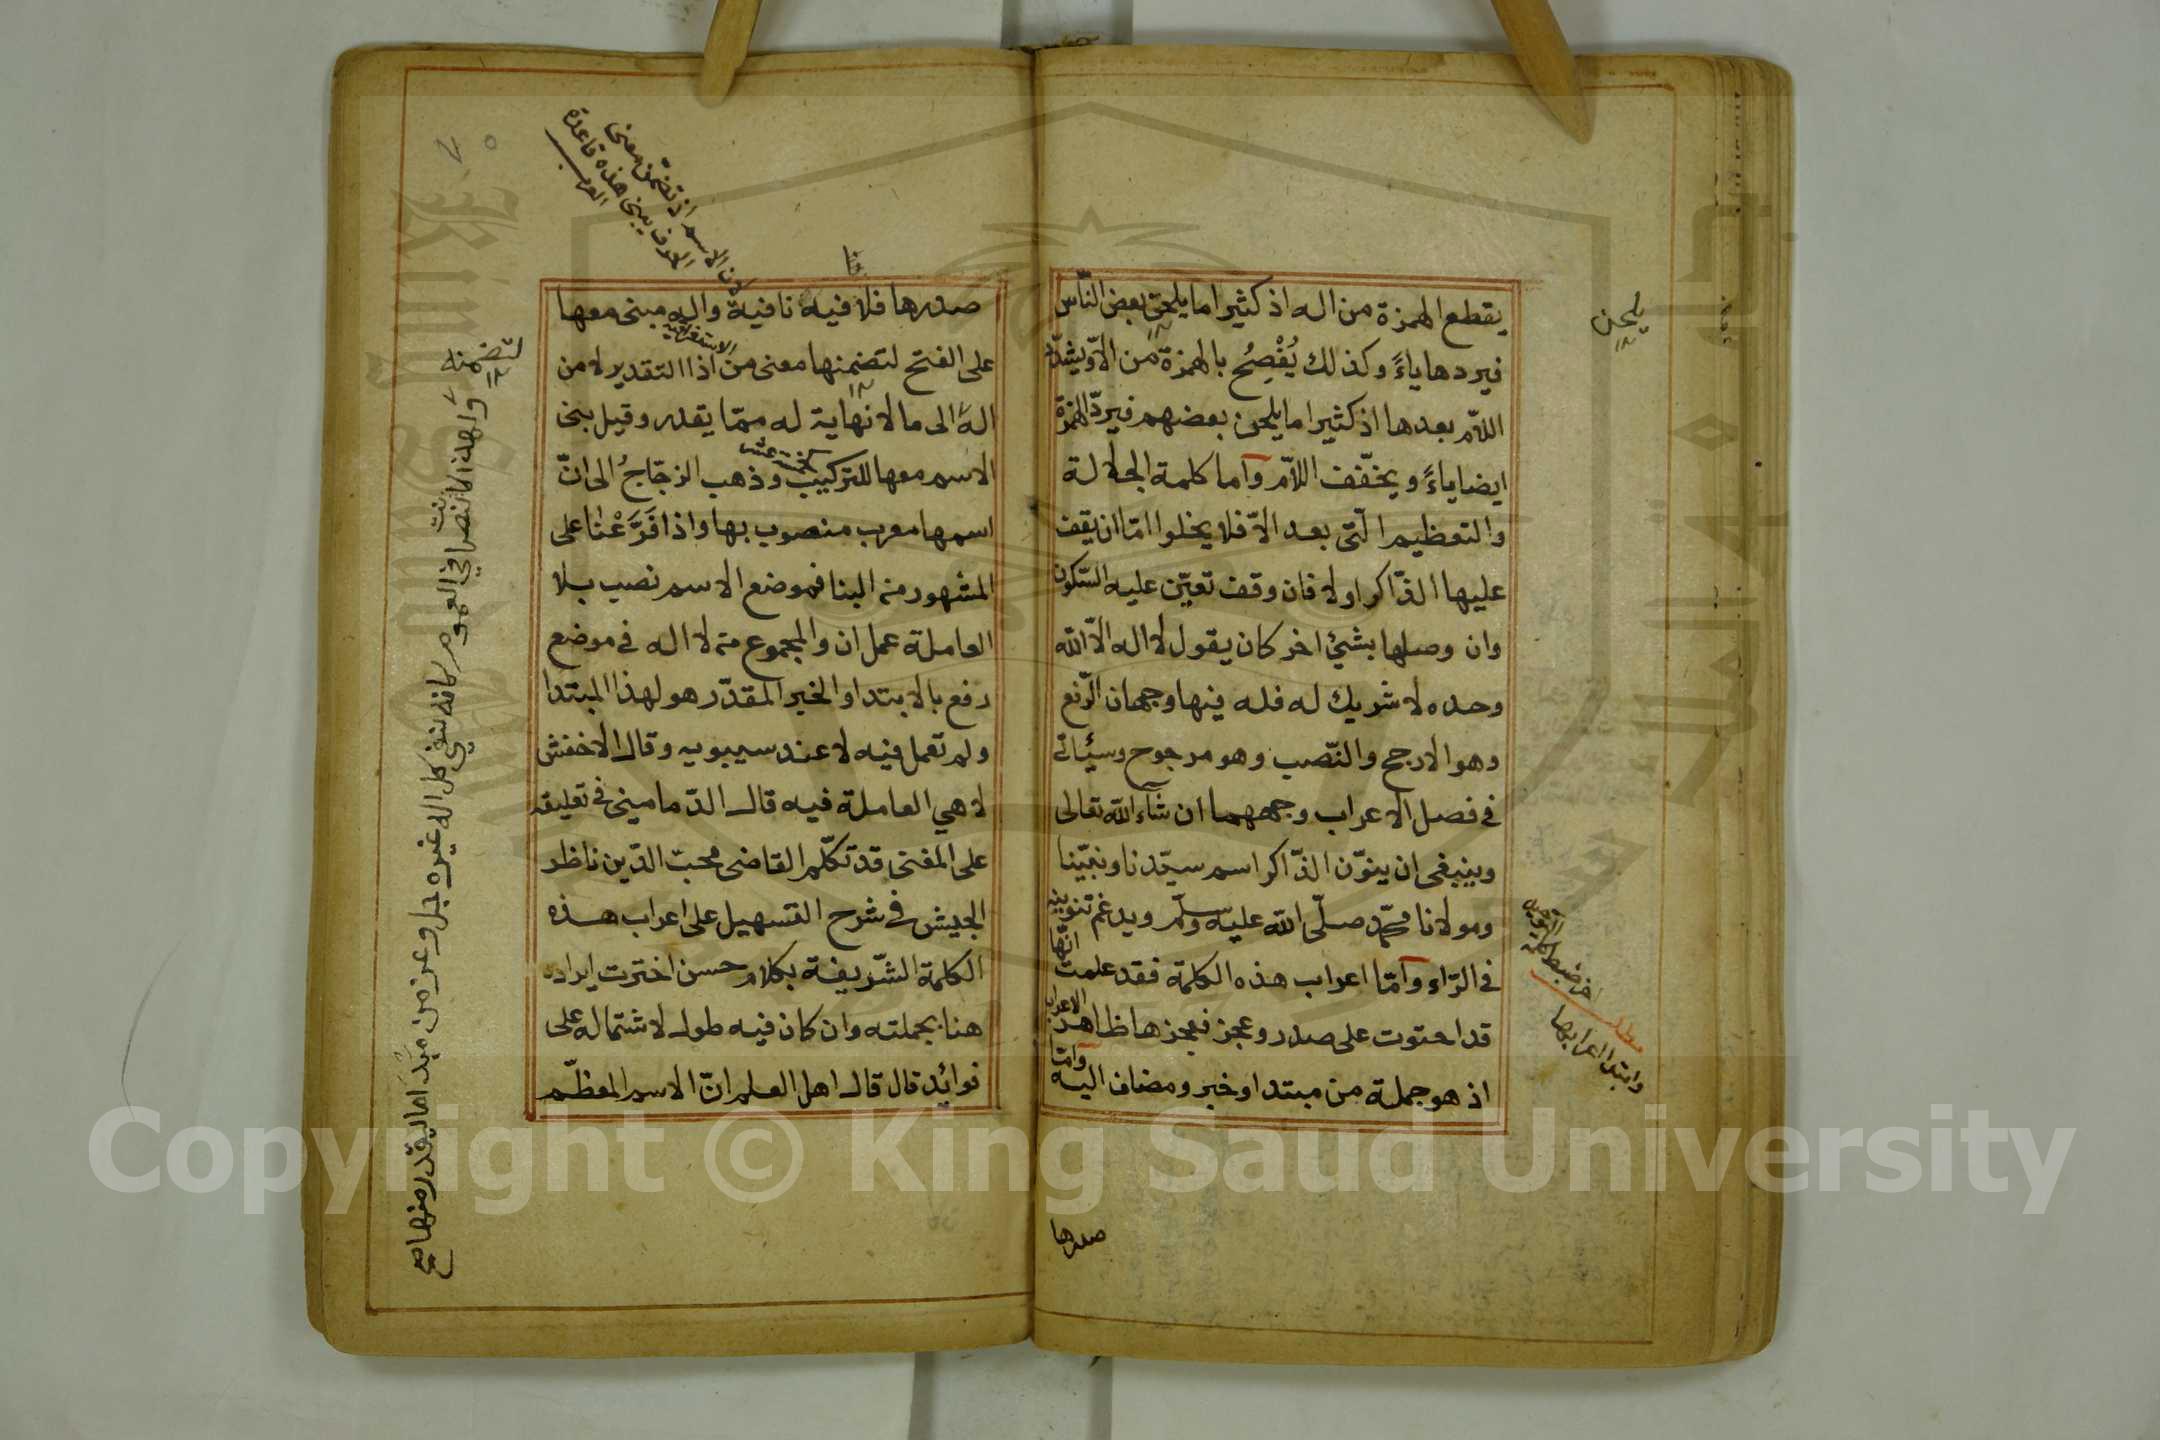 يقطع الهمزة من اله اذ كثيرا ما يلحن بعض الناس
فيردها ياءً وكذلك يُفْصِحُ بالهمزة من الاّ ويشدّد
اللاّم بعدها اذ كثيرا ما يلحن بعضهم فيردّ الهمزة
ايضا ياءً ويخفّف اللاّم وآما كلمة الجلالة
والتعظيم الّتى بعد الاّ فلا يخلوا امّا ان يقف
عليها الذّاكر اولا فان وقف تعيّن عليه السّكون
وان وصلها بشئ اخر كان يقول لا اله الاّ الله
وحده لا شريك له فله فيها وجهان الرّفع
وهو الارجح والنّصب وهو مرجوح وسيئاتى
فى فصل الاعراب وجههما ان شآء الله تعالى
وينبغى ان ينوّن الذّاكر اسم سيّدنا ونبيّنا
ومولانا محمّد صلّى الله عليه وسلّم ويدغم تنوينه
فى الرّاء وآمّا اعراب هذه الكلمة فقد علمت انّها
قد احتوت على صدر وعجز فعجزها ظاهر الاعراب
اذ هو جملة من مبتدا وخبر ومضاف اليه وآمّا
صدرها
يلحن
وابتدا اعرابها
صدرها فلا فيه نافية واله مبنى معها
على الفتح لتضمنها معنى من اذا التقدير لا من
الاستغراقية
اله الى ما لا نهاية له ممّا يقدر وقيل بنى
الاسم معها للتركيب وذهب الزجّاجُ الى انّ
كخمسة عشر
اسمها معرب منصوب بها واذا فَرَّعْنا على
المشهور من البنا فموضع الاسم نصب بلا
العاملة عمل ان والمجموع من لا اله فى موضع
رفع بالابتدا والخبر المقدّر هو لهذا المبتدا
ولم تعمل فيه لا عند سيبويه وقال الاخفش
لا هي العاملة فيه قال الدّمامينى فى تعليقه
على المغنى قد تكلّم القاضى محبّ الدّين ناظر
الجيش فى شرح التسهيل على اعراب هذه
الكلمة الشّريفة بكلام حسن اخترت ايراده
هنا بجملته وان كان فيه طول لاشتماله على
فوائد قال قال اهل العلم انّ الاسم المعظّم
لان الاسم اذ تضمّن معنى
الحرف يبنى هذه قاعدة
العرب
لتضمنه
ولهذا كانت نصا في العموم كانه نفى كل اله غيره جل وعز من مبدا ما يقدر منها
Copyright © King Saud University